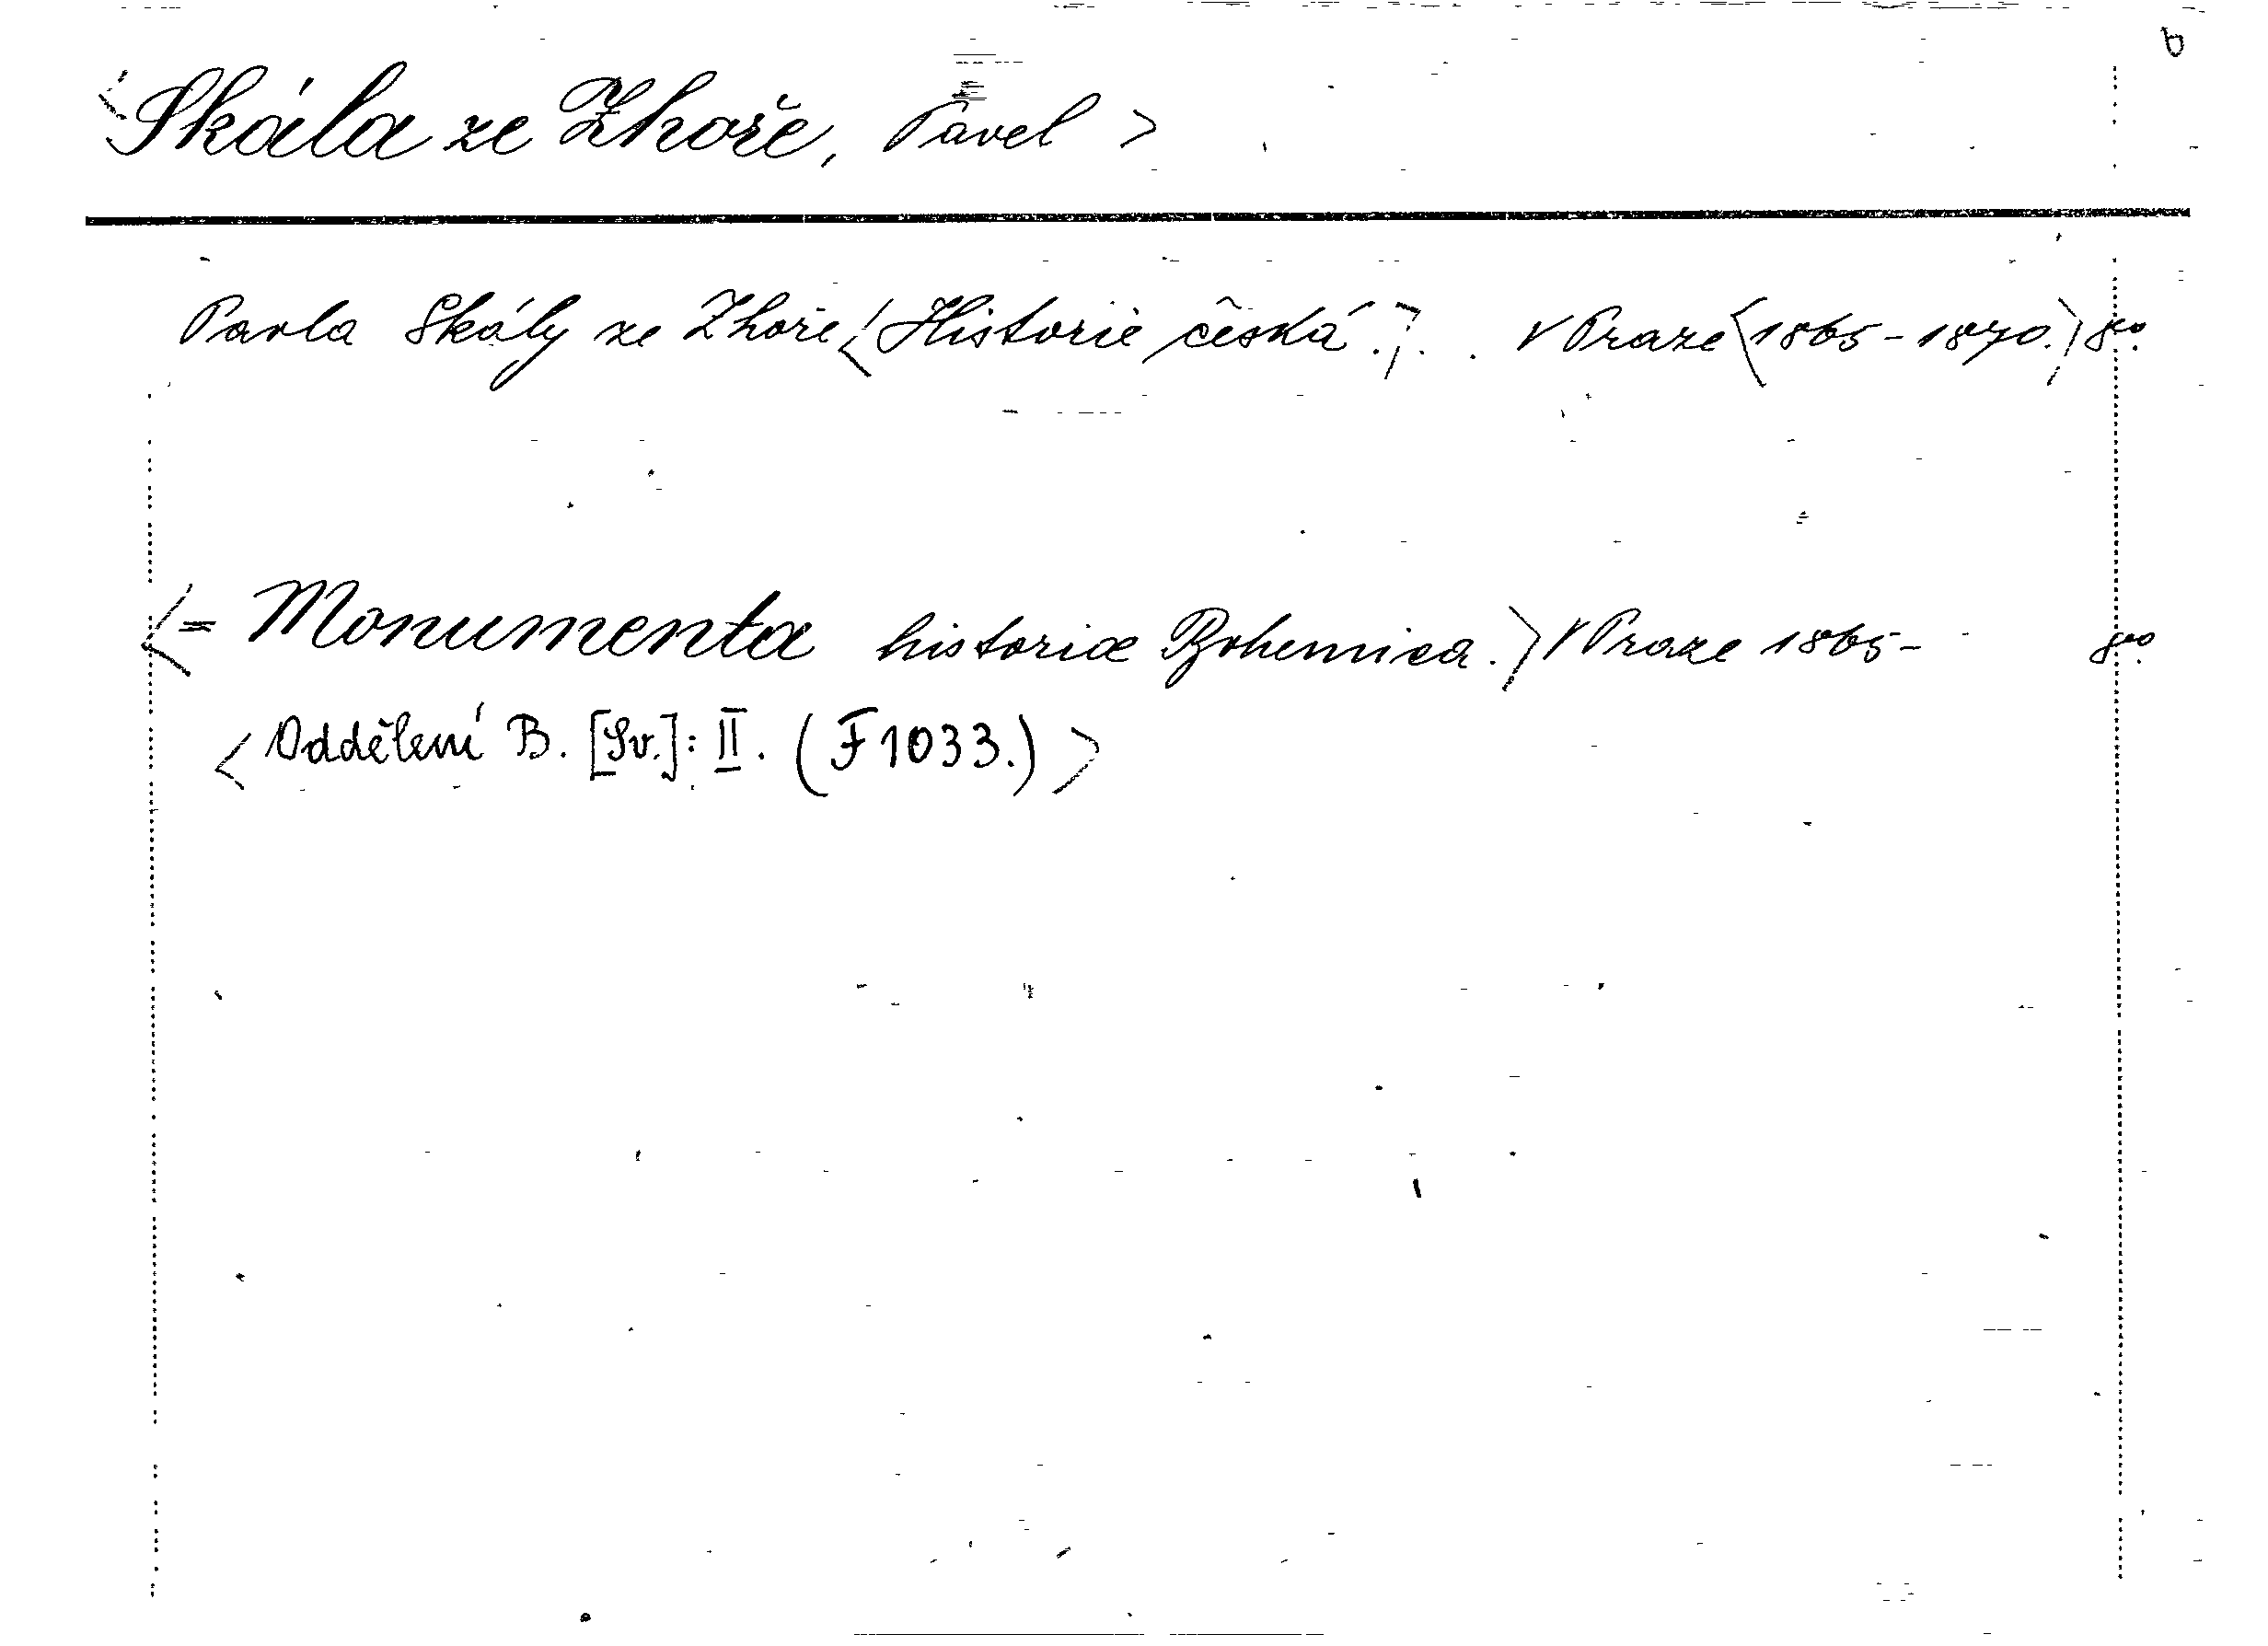 b
<Skála ze Zhoře, Pavel>
Pavla Skály ze Zhoře <Historie česká.> . . V Praze <1865-1870.> 8vo.
<= Monumenta historiæ Bohemica.> V Praze 1865- 8vo.
<Oddělení B. [Sv.]: II. (F 1033.)>